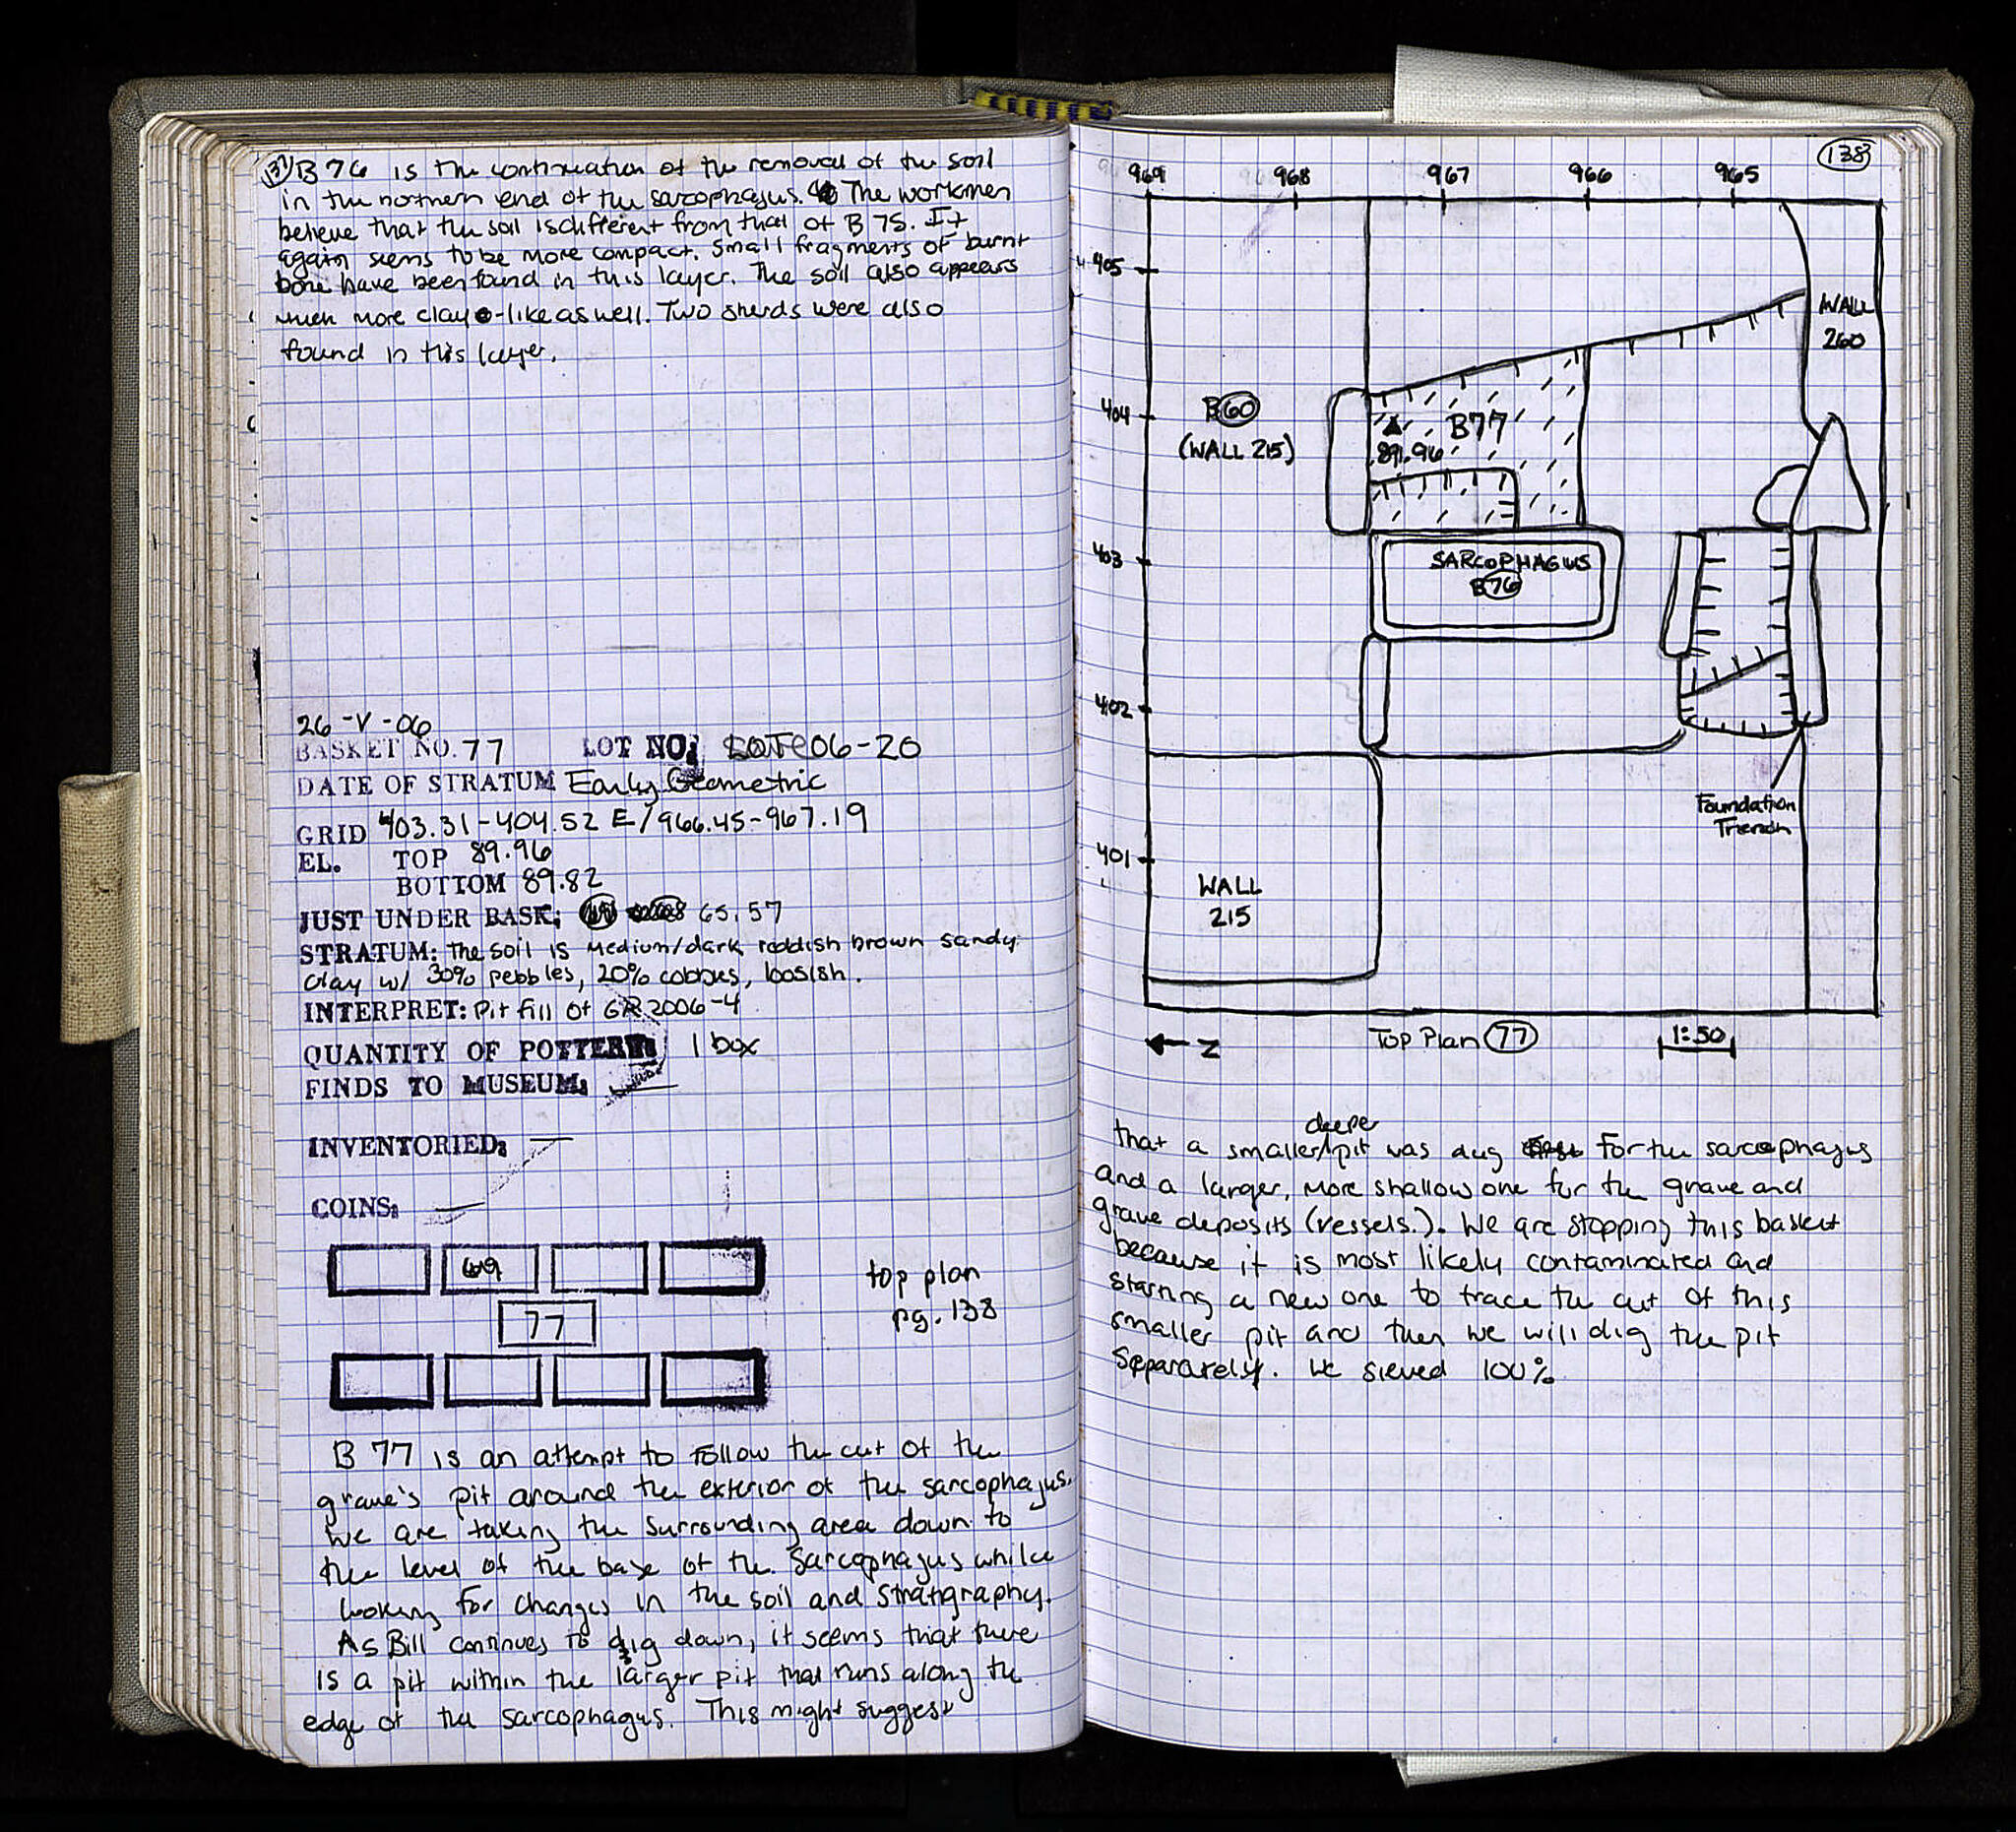 137 B 76 is the continuation of the removal of the soil
in the northern end of the sarcophagus. The workmen
believe that the soil is different from that of B 75. It
again seems to be more compact. Small fragments of burnt
bone have been found in this layer. The soil also appears
much more clay-like as well. Two sherds were also
found in this layer.
26-V-06
BASKET NO. 77 LOT NO: 06-20
DATE OF STRATUM Early Geometric
GRID 403.31-404.52 E/966.45-967.19
EL. TOP 89.96
BOTTOM 89.82
JUST UNDER BASK: 65, 57
STRATUM: The soil is medium/dark reddish brown sandy
clay w/ 30% pebbles, 20% cobbles, loosish.
INTERPRET: Pit fill of GR 2006-4
QUANTITY OF POTTERY: 1 box
FINDS TO MUSEUM: —
INVENTORIED: —
COINS: —
69
77
top plan
pg. 138
B 77 is an attempt to follow the cut of the
grave's pit around the exterior of the sarcophagus.
We are taking the surrounding area down to
the level of the base of the sarcophagus while
looking for changes in the soil and stratigraphy.
As Bill continues to dig down, it seems that there
is a pit within the larger pit that runs along the
edge of the sarcophagus. This might suggest
138
969 968 967 966 965
405
WALL
260
404
B60
(WALL 215)
B77
89.96
403
SARCOPHAGUS
B76
402
Foundation
Trench
401
WALL
215
← Z
Top Plan 77
1:50
deeper
that a smaller/pit was dug for the sarcophagus
and a larger, more shallow one for the grave and
grave deposits (vessels.). We are stopping this basket
because it is most likely contaminated and
starting a new one to trace the cut of this
smaller pit and then we will dig the pit
separately. We sieved 100%